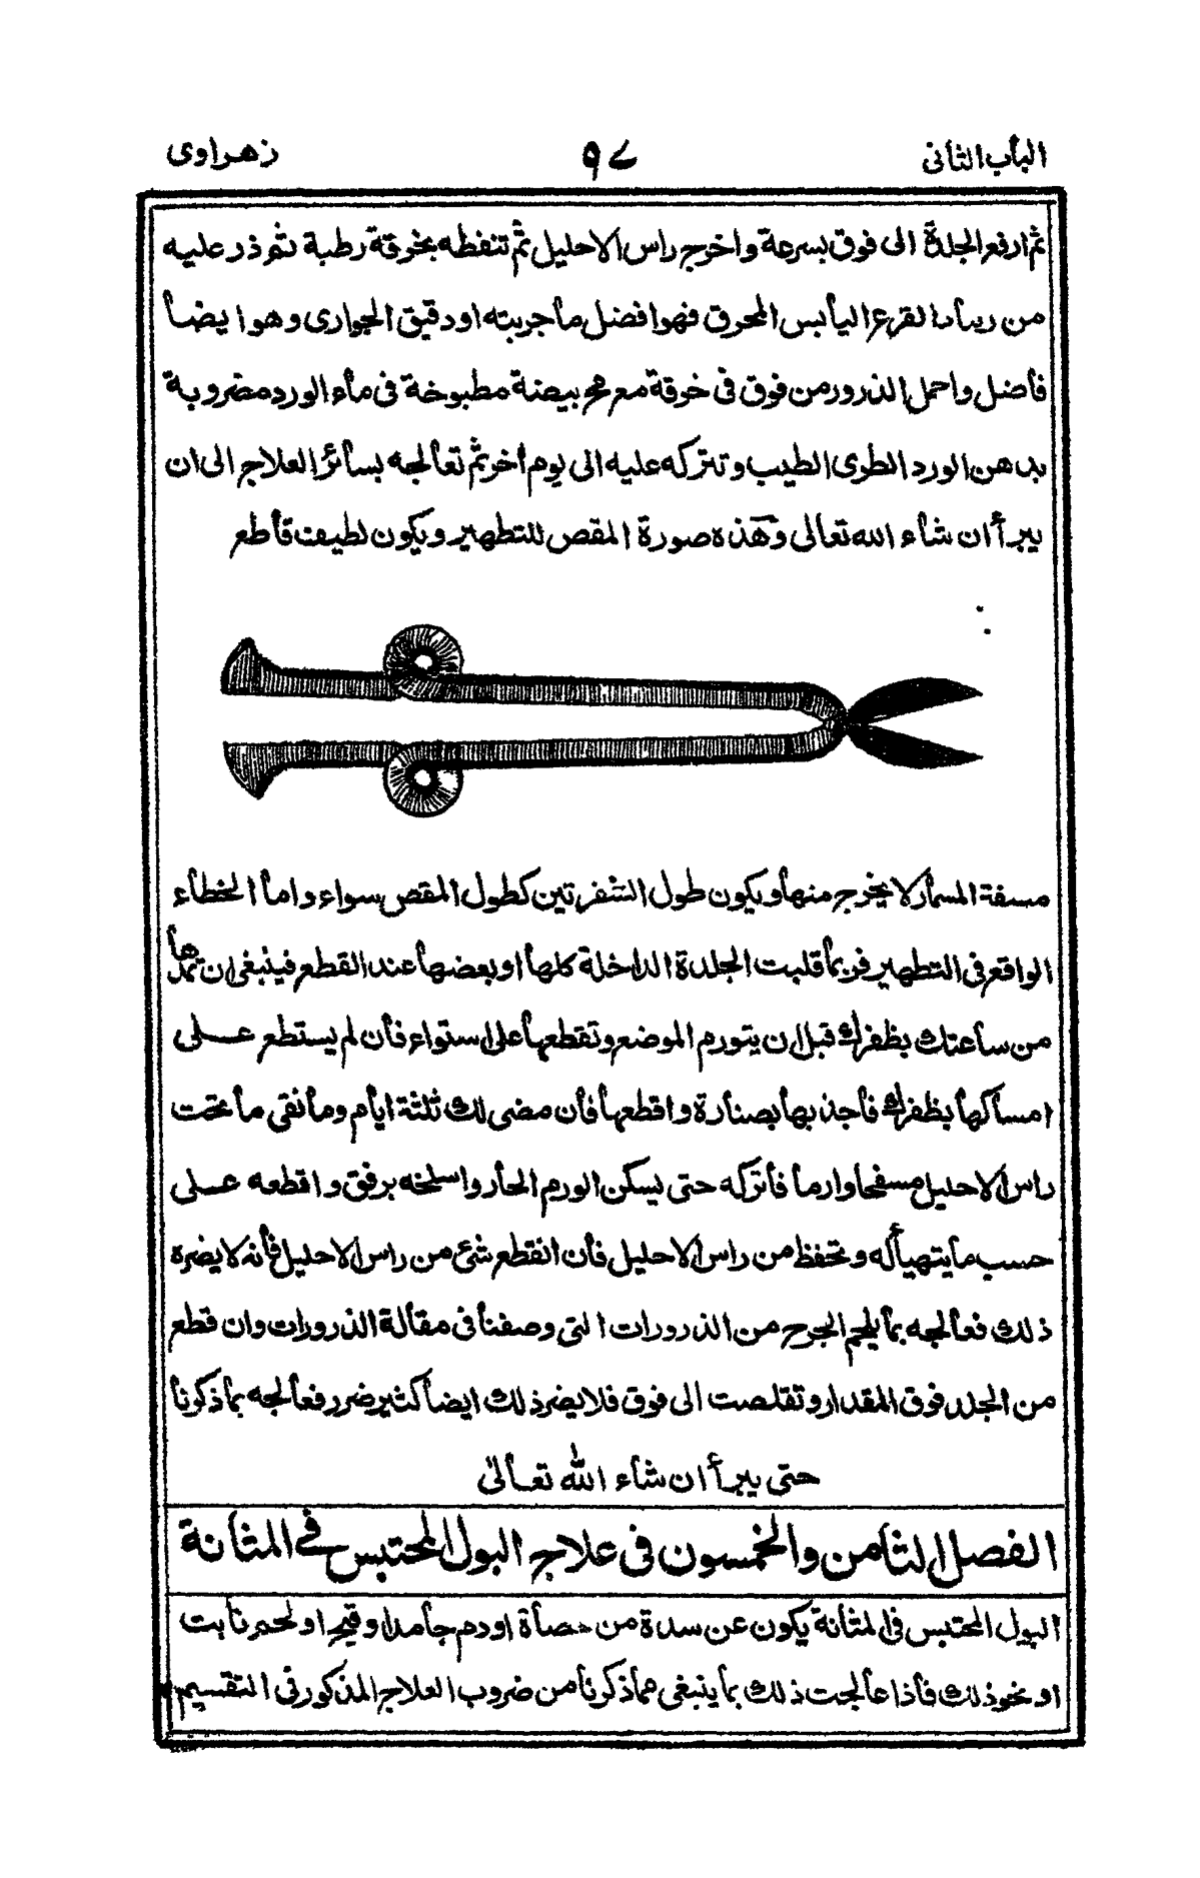 الباب الثانى ٩٧ زهراوى
ثم ارفع الجلدة الى فوق بسرعة واخرج راس الاحليل ثم تنفظه بخرقة رطبة ثم ذر عليه
من رماد القرع اليابس المحرق فهو افضل ما جربته او دقيق الجوارى وهو ايضا
فاضل واحمل الذرور من فوق فى خرقة مع مح بيضة مطبوخة فى ماء الورد مضروبة
بدهن الورد الطرى الطيب وتتركه عليه الى يوم اخر ثم تعالجه بسائر العلاج الى ان
يبرأ ان شاء الله تعالى وهذه صورة المقص للتطهير ويكون لطيف قاطع
مسفة المسمار لا يخرج منها ويكون طول الشفرتين كطول المقص سواء واما الخطاء
الواقع فى التطهير فربما قلبت الجلدة الداخلة كلها او بعضها عند القطع فينبغى ان تمدها
من ساعتك بظفرك قبل ان يتورم الموضع وتقطعها على استواء فان لم يستطع على
امساكها بظفرك فاجذبها بصنارة واقطعها فان مضى لك ثلثة ايام وما نقى ما تحت
راس الاحليل مسفحا وارما فاتركه حتى يسكن الورم الحار واسلخه برفق واقطعه على
حسب ما يتهيأ له وتحفظ من راس الاحليل فان انقطع شئ من راس الاحليل فانه لا يضره
ذلك فعالجه بما يلحم الجرح من الذرورات التى وصفنا فى مقالة الذرورات وان قطع
من الجلد فوق المقدار وتقلصت الى فوق فلا يضر ذلك ايضا كثير ضرر فعالجه بما ذكرنا
حتى يبرأ ان شاء الله تعالى
الفصل الثامن والخمسون فى علاج البول المحتبس فى المثانة
البول المحتبس فى المثانة يكون عن سدة من حصاة او دم جامد او قيح او لحم نابت
او نحو ذلك فاذا عالجت ذلك بما ينبغى مما ذكرنا من ضروب العلاج المذكور فى التقسيم